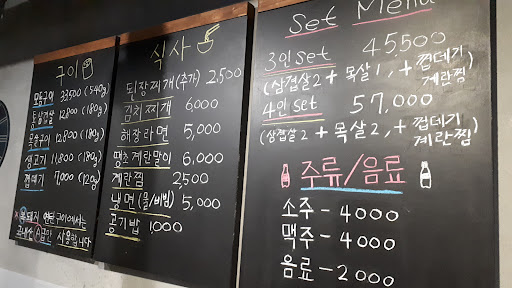 구이
모듬구이 33,500 (540g)
통삼겹살 12,800 (180g)
목살구이 12,800 (180g)
생고기 11,800 (180g)
껍데기 7,000 (120g)
국내산 A급만 사용합니다
식사
된장찌개 (추가) 2,500
김치찌개 6000
해장라면 5,000
땡초계란말이 6,000
계란찜 2,500
냉면 (물/비빔) 5,000
공기밥 1,000
Set Menu
3인 set 45,500
(삼겹살2 + 목살1, + 껍데기
계란찜)
4인 set 57,000
(삼겹살2 + 목살2, + 껍데기
계란찜)
주류/음료
소주 - 4000
맥주 - 4000
음료 - 2000